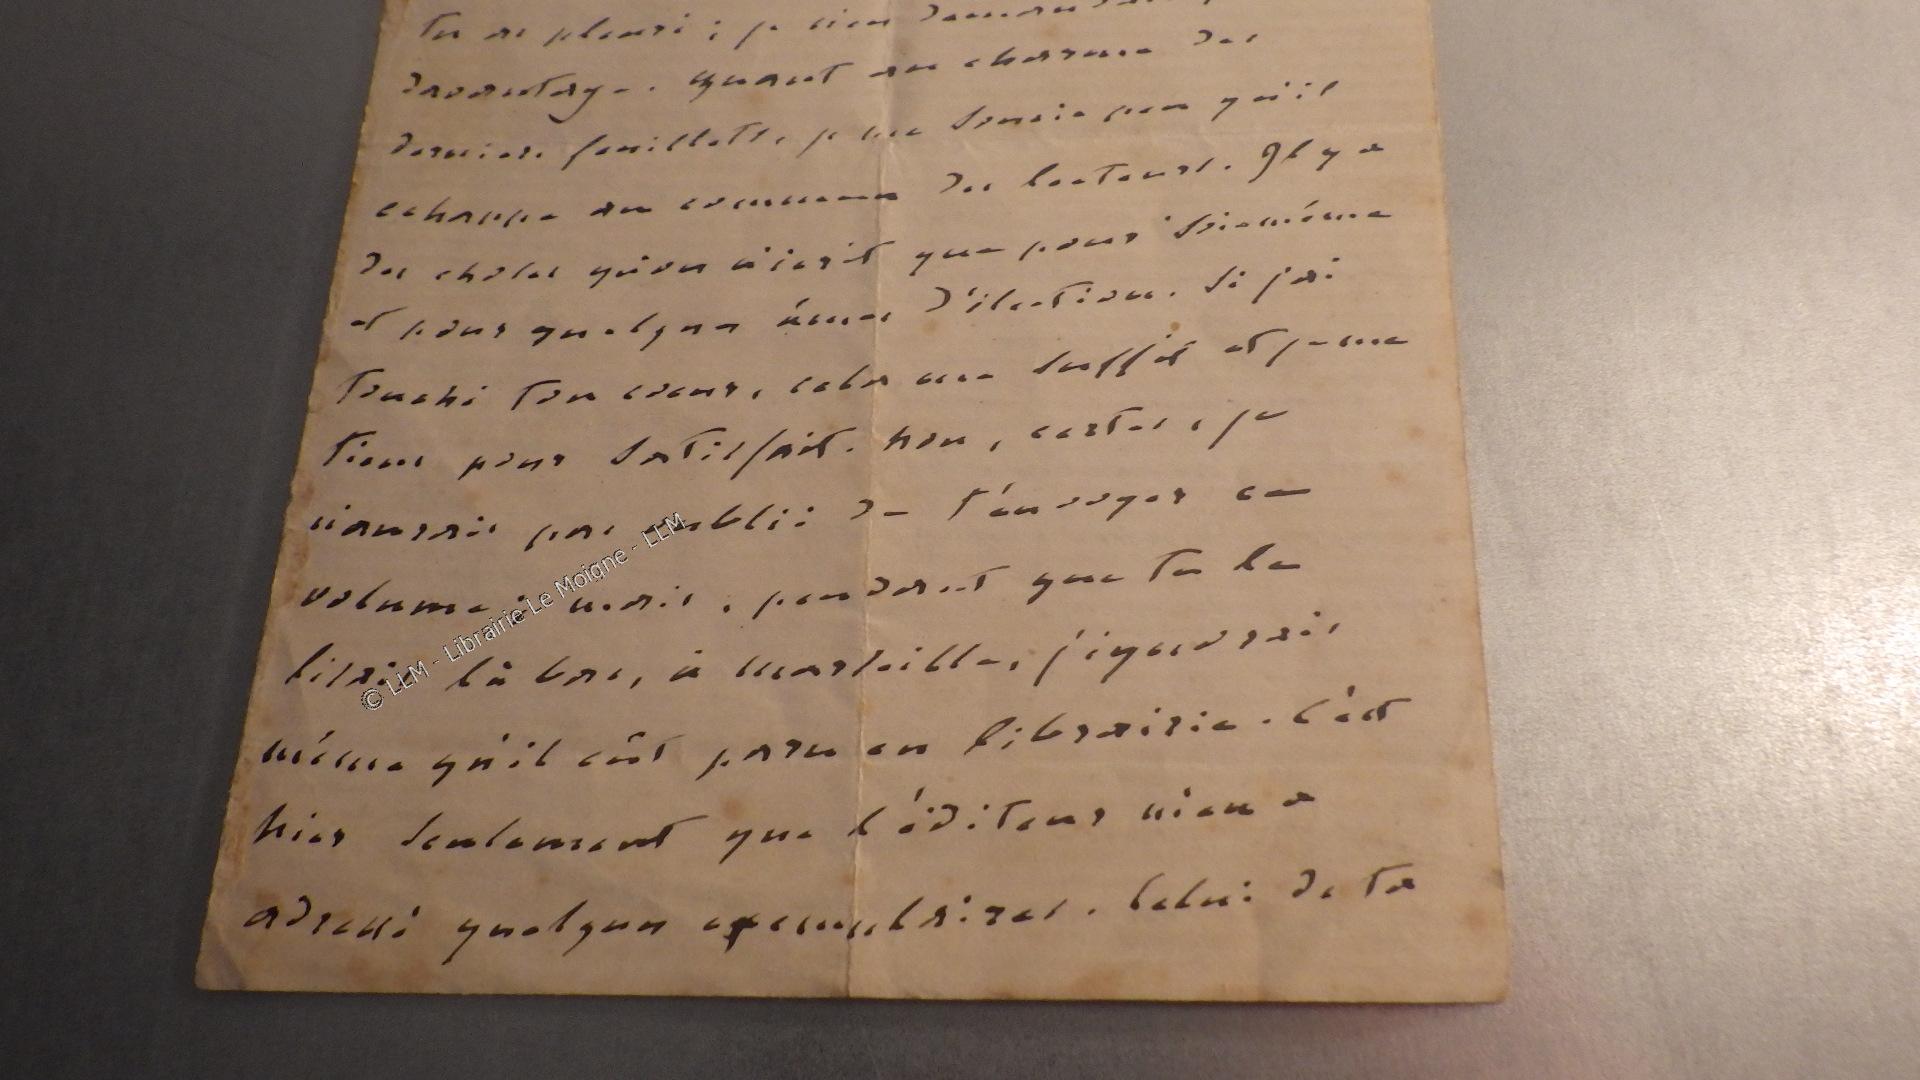 Tu as pleuré ; je n'en demandais pas
davantage. Quant au charme des
derniers feuillets, je me soucie peu qu'il
échappe au commun des lecteurs. Il y a
des choses qu'on n'écrit que pour soi-même
et pour quelques âmes d'élection. Si j'ai
touché ton coeur, cela me suffit et je me
tiens pour satisfait. Non, certes, je
n'aurais pas oublié de t'envoyer ce
volume ; mais, pendant que tu le
lisais là bas, à Marseille, j'ignorais
même qu'il eût paru en librairie. C'est
hier seulement que l'éditeur m'en a
adressé quelques exemplaires. Celui de ta
© LLM - Librairie Le Moigne - LLM